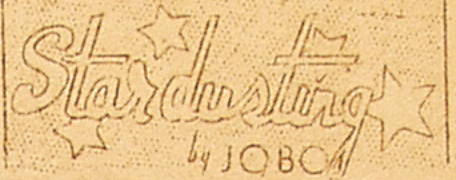 Stardusting
by JOBO